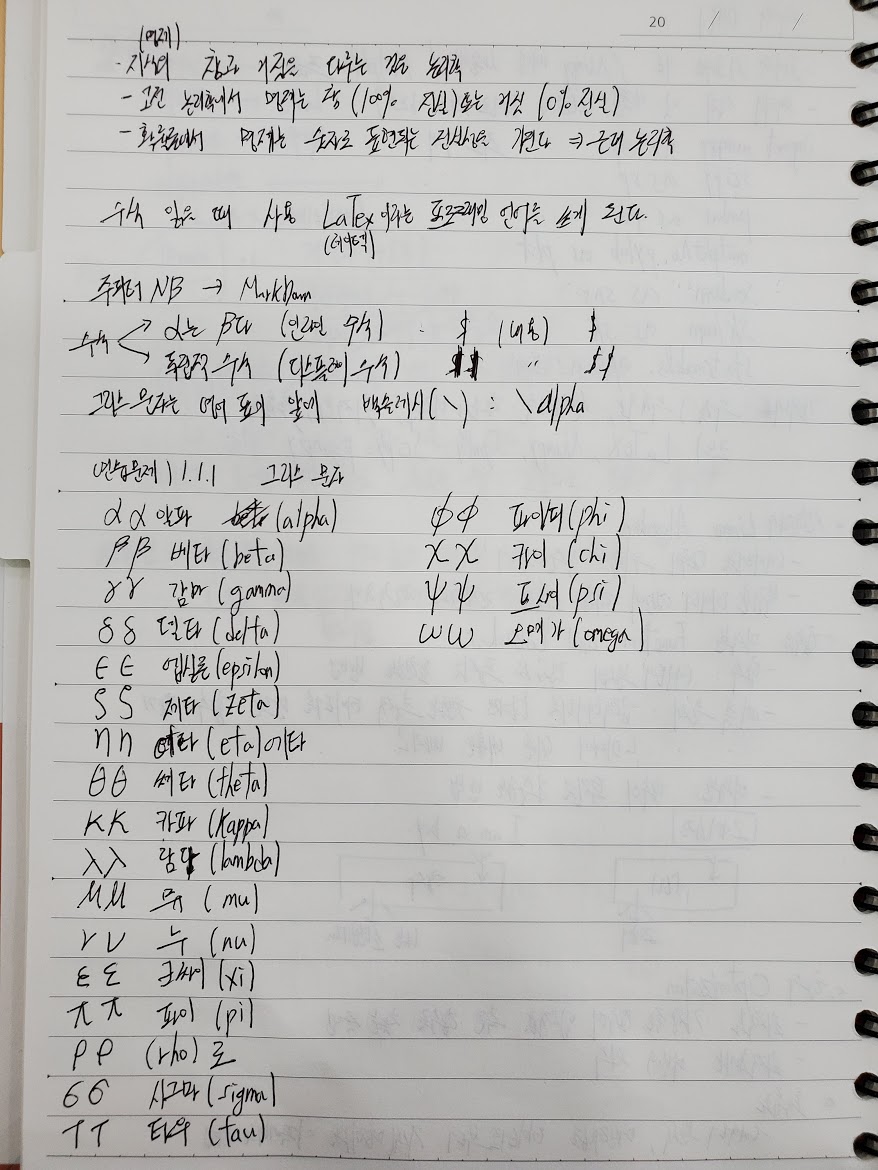 20 / /
(명제)
· 지식의 참과 거짓을 다루는 것은 논리학
- 고전 논리학에서 명제는 참 (100% 진실) 또는 거짓 (0% 진실)
- 확률론에서 명제는 숫자로 표현되는 진실성을 가진다 ⇒ 근대 논리학
수식 읽을 때 사용 LaTex이라는 프로그래밍 언어를 쓰게 된다.
(레이텍)
주피터 NB → MarkDown
수식 → α는 β다 (인라인 수식) · $ (내용) $
→ 독립적 수식 (디스플레이 수식) $$ " $$
그리스 문자는 영어 표기 앞에 백슬래시(\) : \alpha
연습문제 1.1.1 그리스 문자
α α 알파 (alpha)
β β 베타 (beta)
γ γ 감마 (gamma)
δ δ 델타 (delta)
ϵ ϵ 엡실론 (epsilon)
ζ ζ 제타 (zeta)
η η (eta) 에타
θ θ 쎄타 (theta)
κ κ 카파 (kappa)
λ λ 람다 (lambda)
μ μ 뮤 (mu)
ν ν 누 (nu)
ξ ξ 크싸이 (xi)
π π 파이 (pi)
ρ ρ (rho) 로
σ σ 시그마 (sigma)
τ τ 타우 (tau)
ϕ ϕ (phi)
χ χ 카이 (chi)
ψ ψ 프사이 (psi)
ω ω 오메가 (omega)